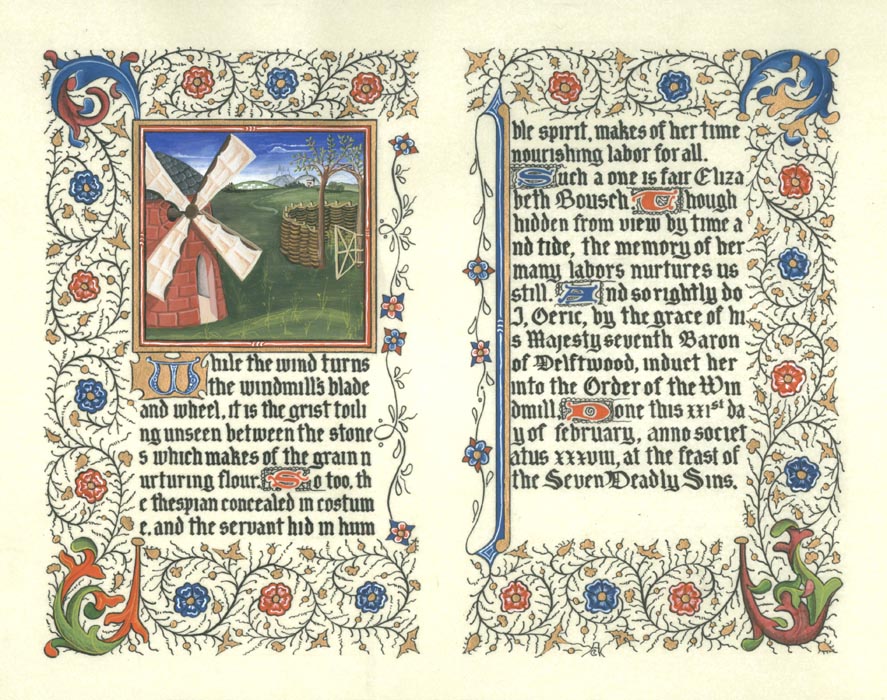 While the wind turns
the windmill's blade
and wheel, it is the grist toili
ng unseen between the stone
s which makes of the grain n
urturing flour. So too, th
e thespian concealed in costum
e, and the servant hid in hum
ble spirit, makes of her time
nourishing labor for all.
Such a one is fair Eliza
beth Bousch. Though
hidden from view by time a
nd tide, the memory of her
many labors nurtures us
still. And so rightly do
I, Oeric, by the grace of hi
s Majesty seventh Baron
of Delftwood, induct her
into the Order of the Win
dmill. Done this xxist da
y of february, anno societ
atus xxxviii, at the feast of
the Seven Deadly Sins.